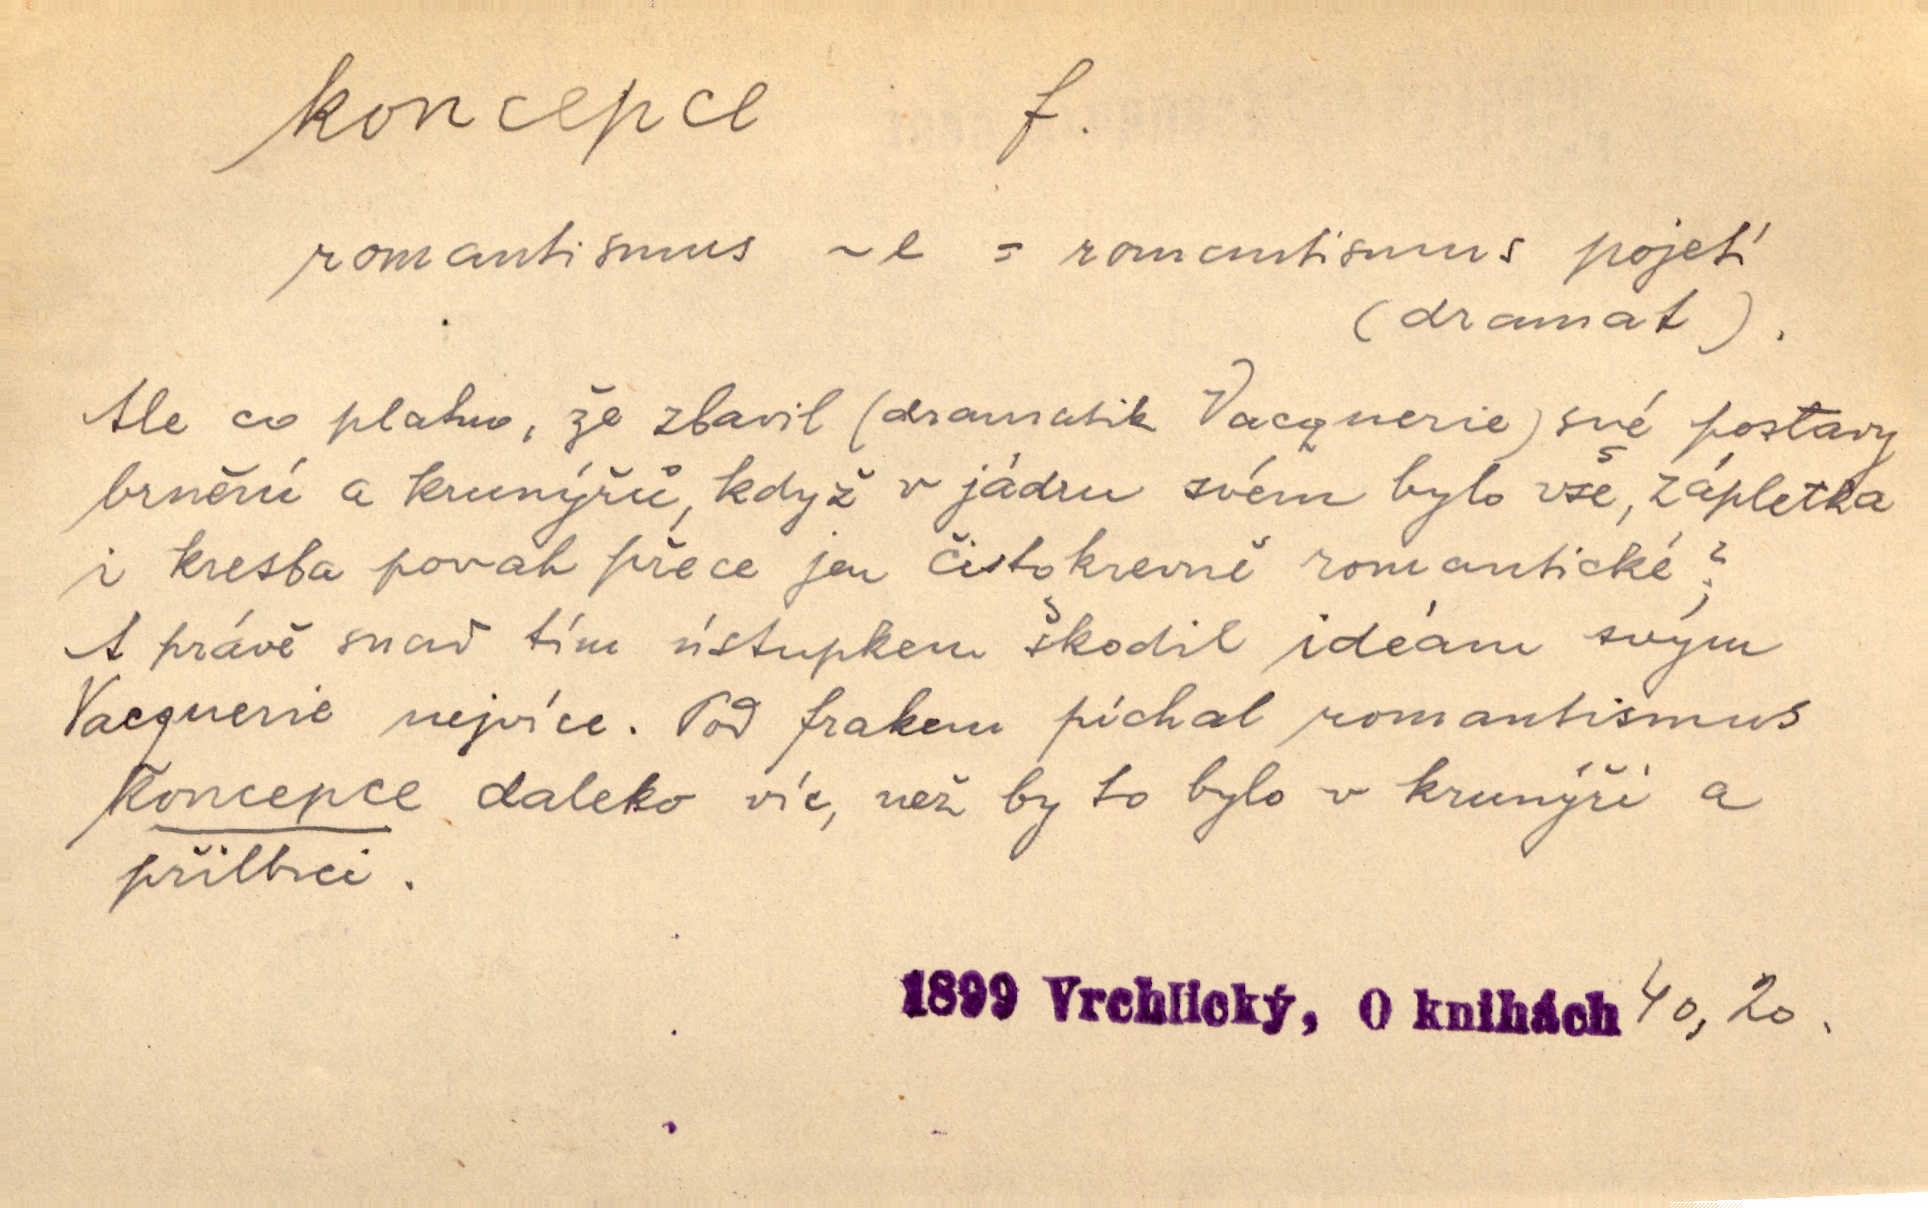 koncepce f.
romantismus ~e = romantismus pojetí
(dramat).
Ale co platno, že zbavil (dramatik Vacquerie) své postavy
brnění a krunýřů, když v jádru svém bylo vše, zápletka
i kresba povah přece jen čistokrevně romantické?
A právě snad tím ústupkem škodil idéám svým
Vacquerie nejvíce. Pod frakem píchal romantismus
koncepce daleko víc, než by to bylo v krunýři a
přilbici.
1899 Vrchlický, O knihách 40, 20.